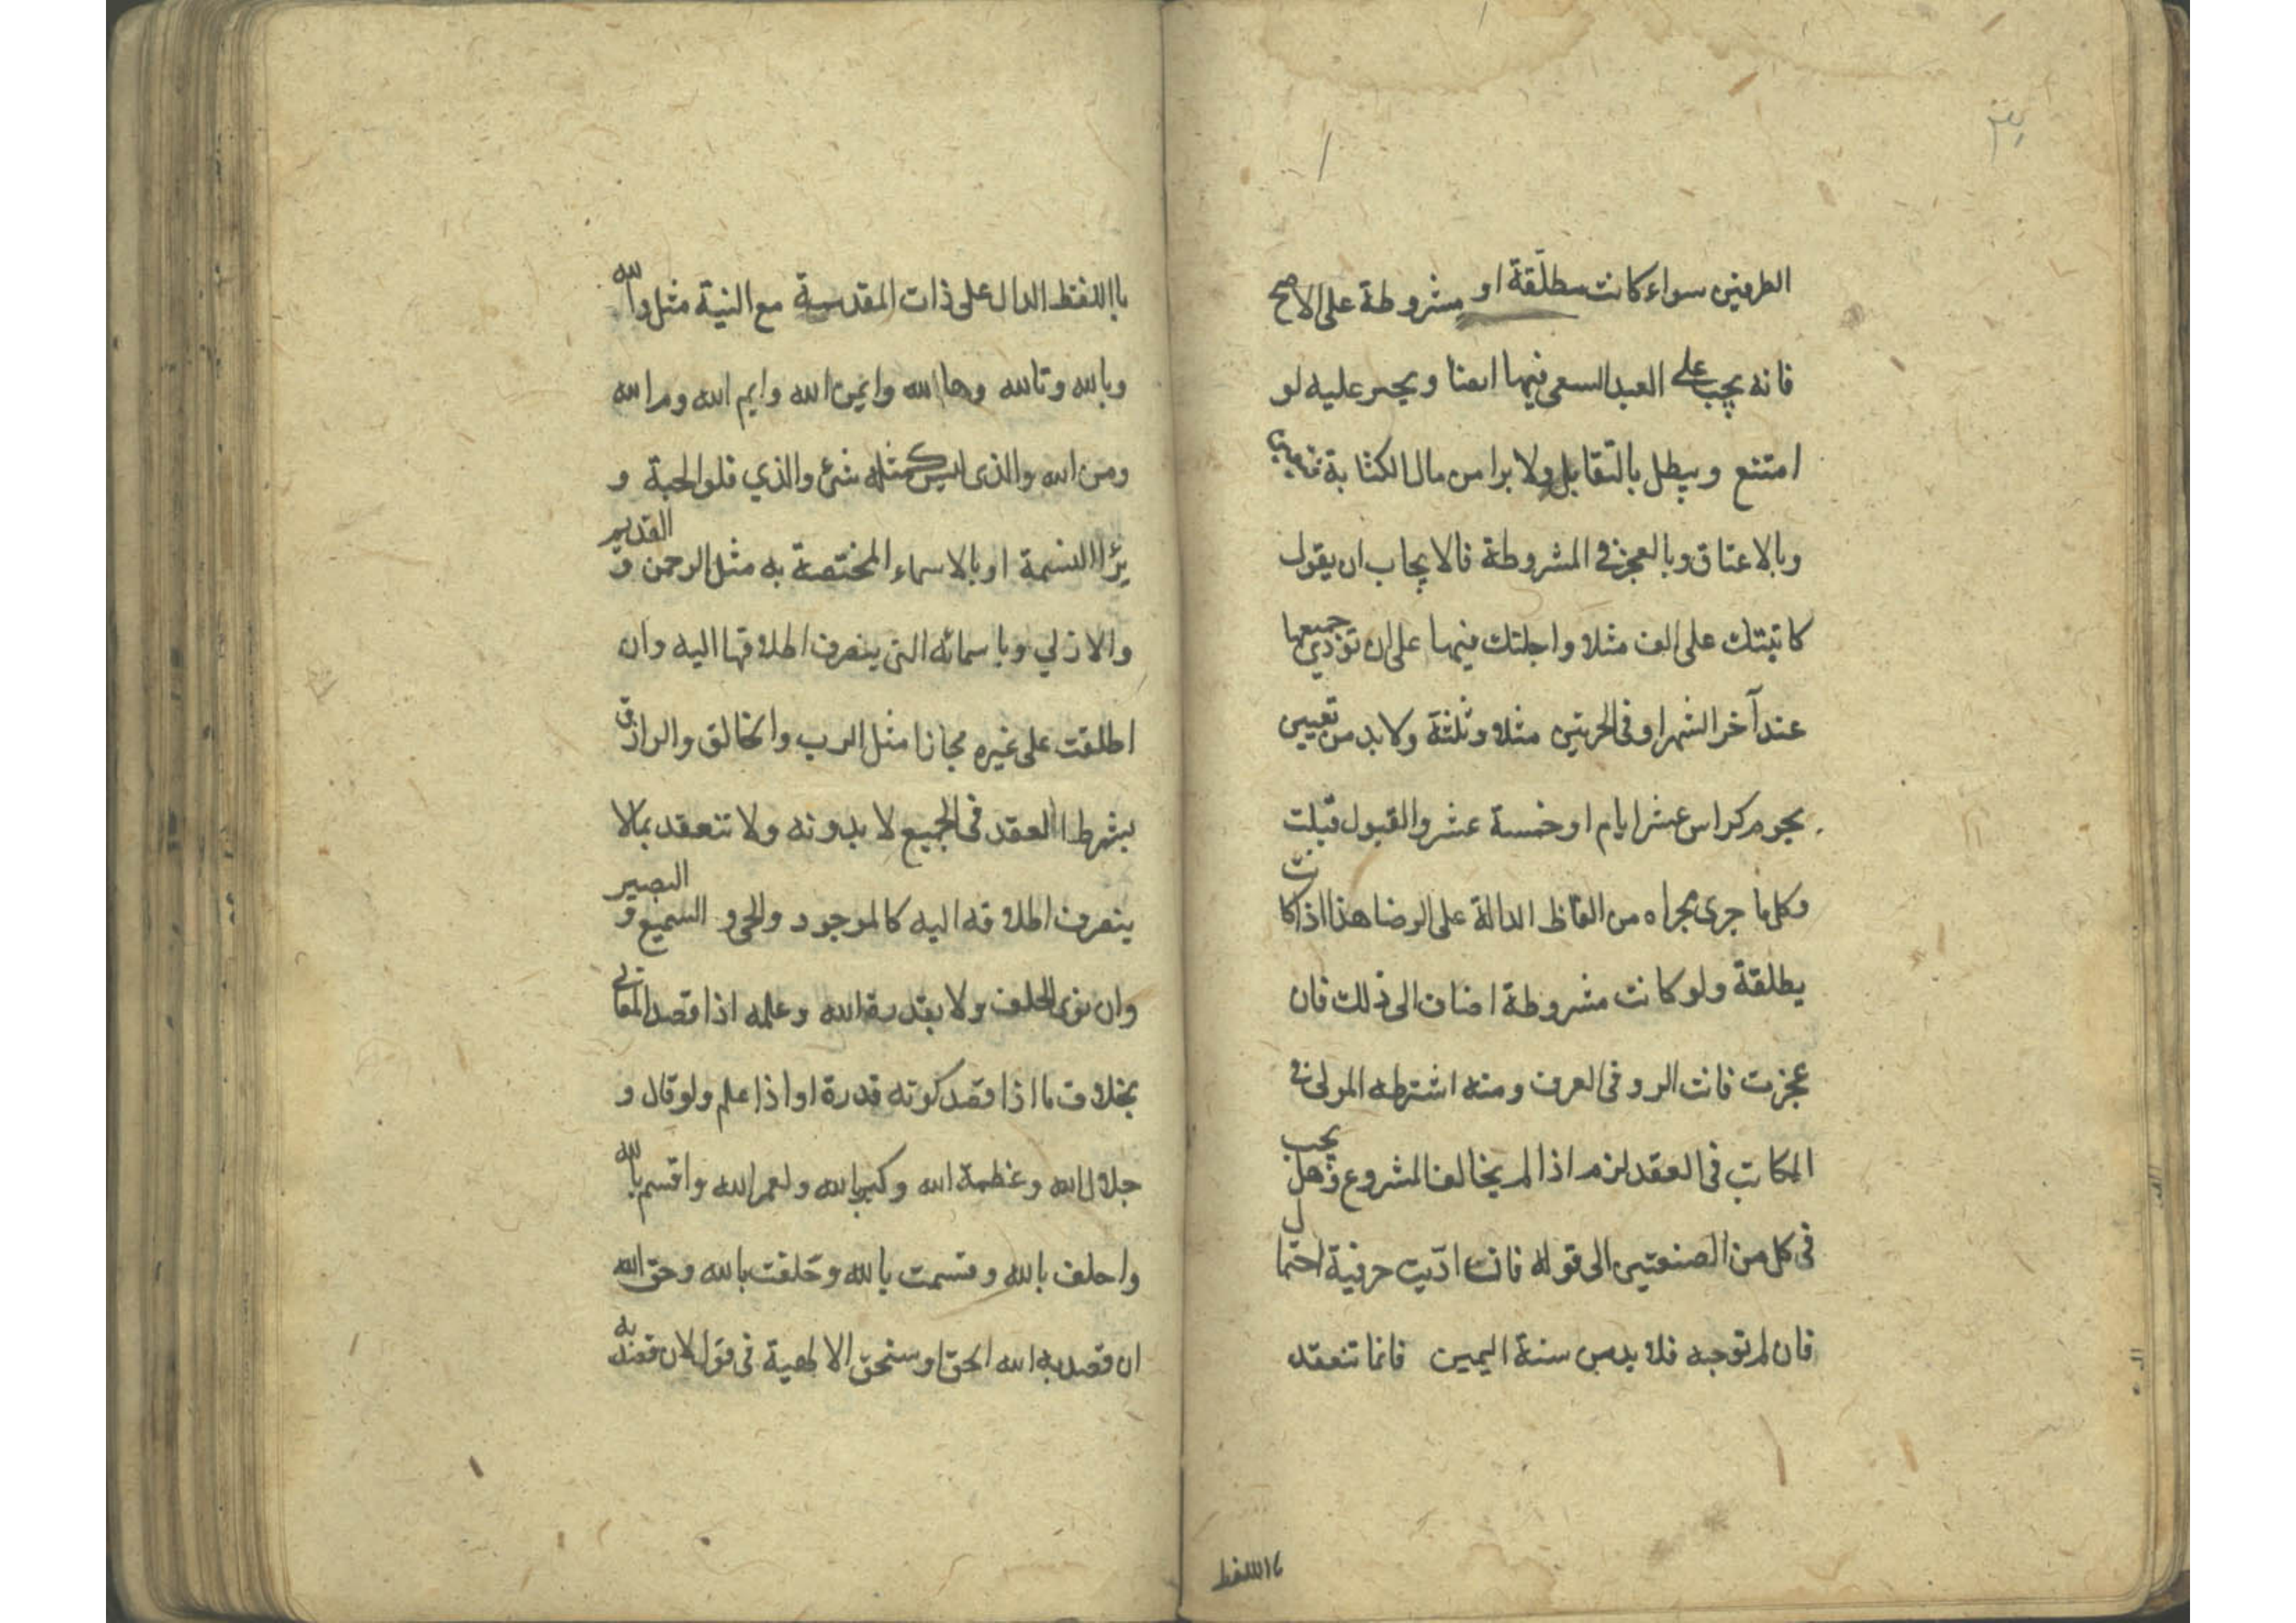 الطرفين سواء كانت مطلقة او مشروطة على الاصح
فانه يجب على العبد السعى فيها ايضا ويجبر عليه لو
امتنع ويبطل بالتقايل ولا برا من مال الكتابة
وبالاعتاق وبالعجز فى المشروطة فالايجاب ان يقول
كاتبتك على الف مثلا واجلتك فيها على ان تؤدي جميعها
عند آخر الشهر او فى الحربتين مثلا وثلثة ولابد من تعيين
بحوم كراس عشر ايام او خمسة عشر والقبول قبلت
وكل ما جرى مجراه من الفاظ الدالة على الرضا هذا اذا كانت
يطلقة ولو كانت مشروطة اضاف الى ذلك فان
عجزت فانت الرد فى العرف ومنه اشترطه المولى فى
المكاتب فى العقد لزم اذا لم يخالف المشروع وهل يجب
فى كل من الصنعتين الى قوله فانت ادّيت حرفية احتمال
فان لم توجبه فلا بد من سنة اليمين فانما تنعقد
بااللفظ
بااللفظ الدال على ذات المقدسة مع النية مثل والله
وبالله وتالله وها الله وايمن الله وايم الله وم الله
ومن الله والذى ليس كمثله شئ والذي فلو الحبة و
برْا النسمة او بالاسماء المختصة به مثل الرحمن و القديم
والازلي وباسمائه التى ينصرف اطلاقها اليه وان
اطلقت على غيره مجازا مثل الرب والخالق والرازق
بشرط العقد فى الجميع لا بدونه ولا تنعقد بمالا
ينصرف اطلاقه اليه كالموجود والحى و السميع و البصير
وان نوى الحلف ولا بقدرة الله وعلمه اذا قصد المعانى
بخلاف ما اذا قصد كونه قدرة او اذا علم ولو قال و
جلال الله وعظمة الله وكبريا الله ولعمر الله واقسم بالله
واحلف بالله وقسمت بالله وحَلفت بالله وحق الله
ان قصد به الله الحق او ستحق الالهية فى قول لان قصد به